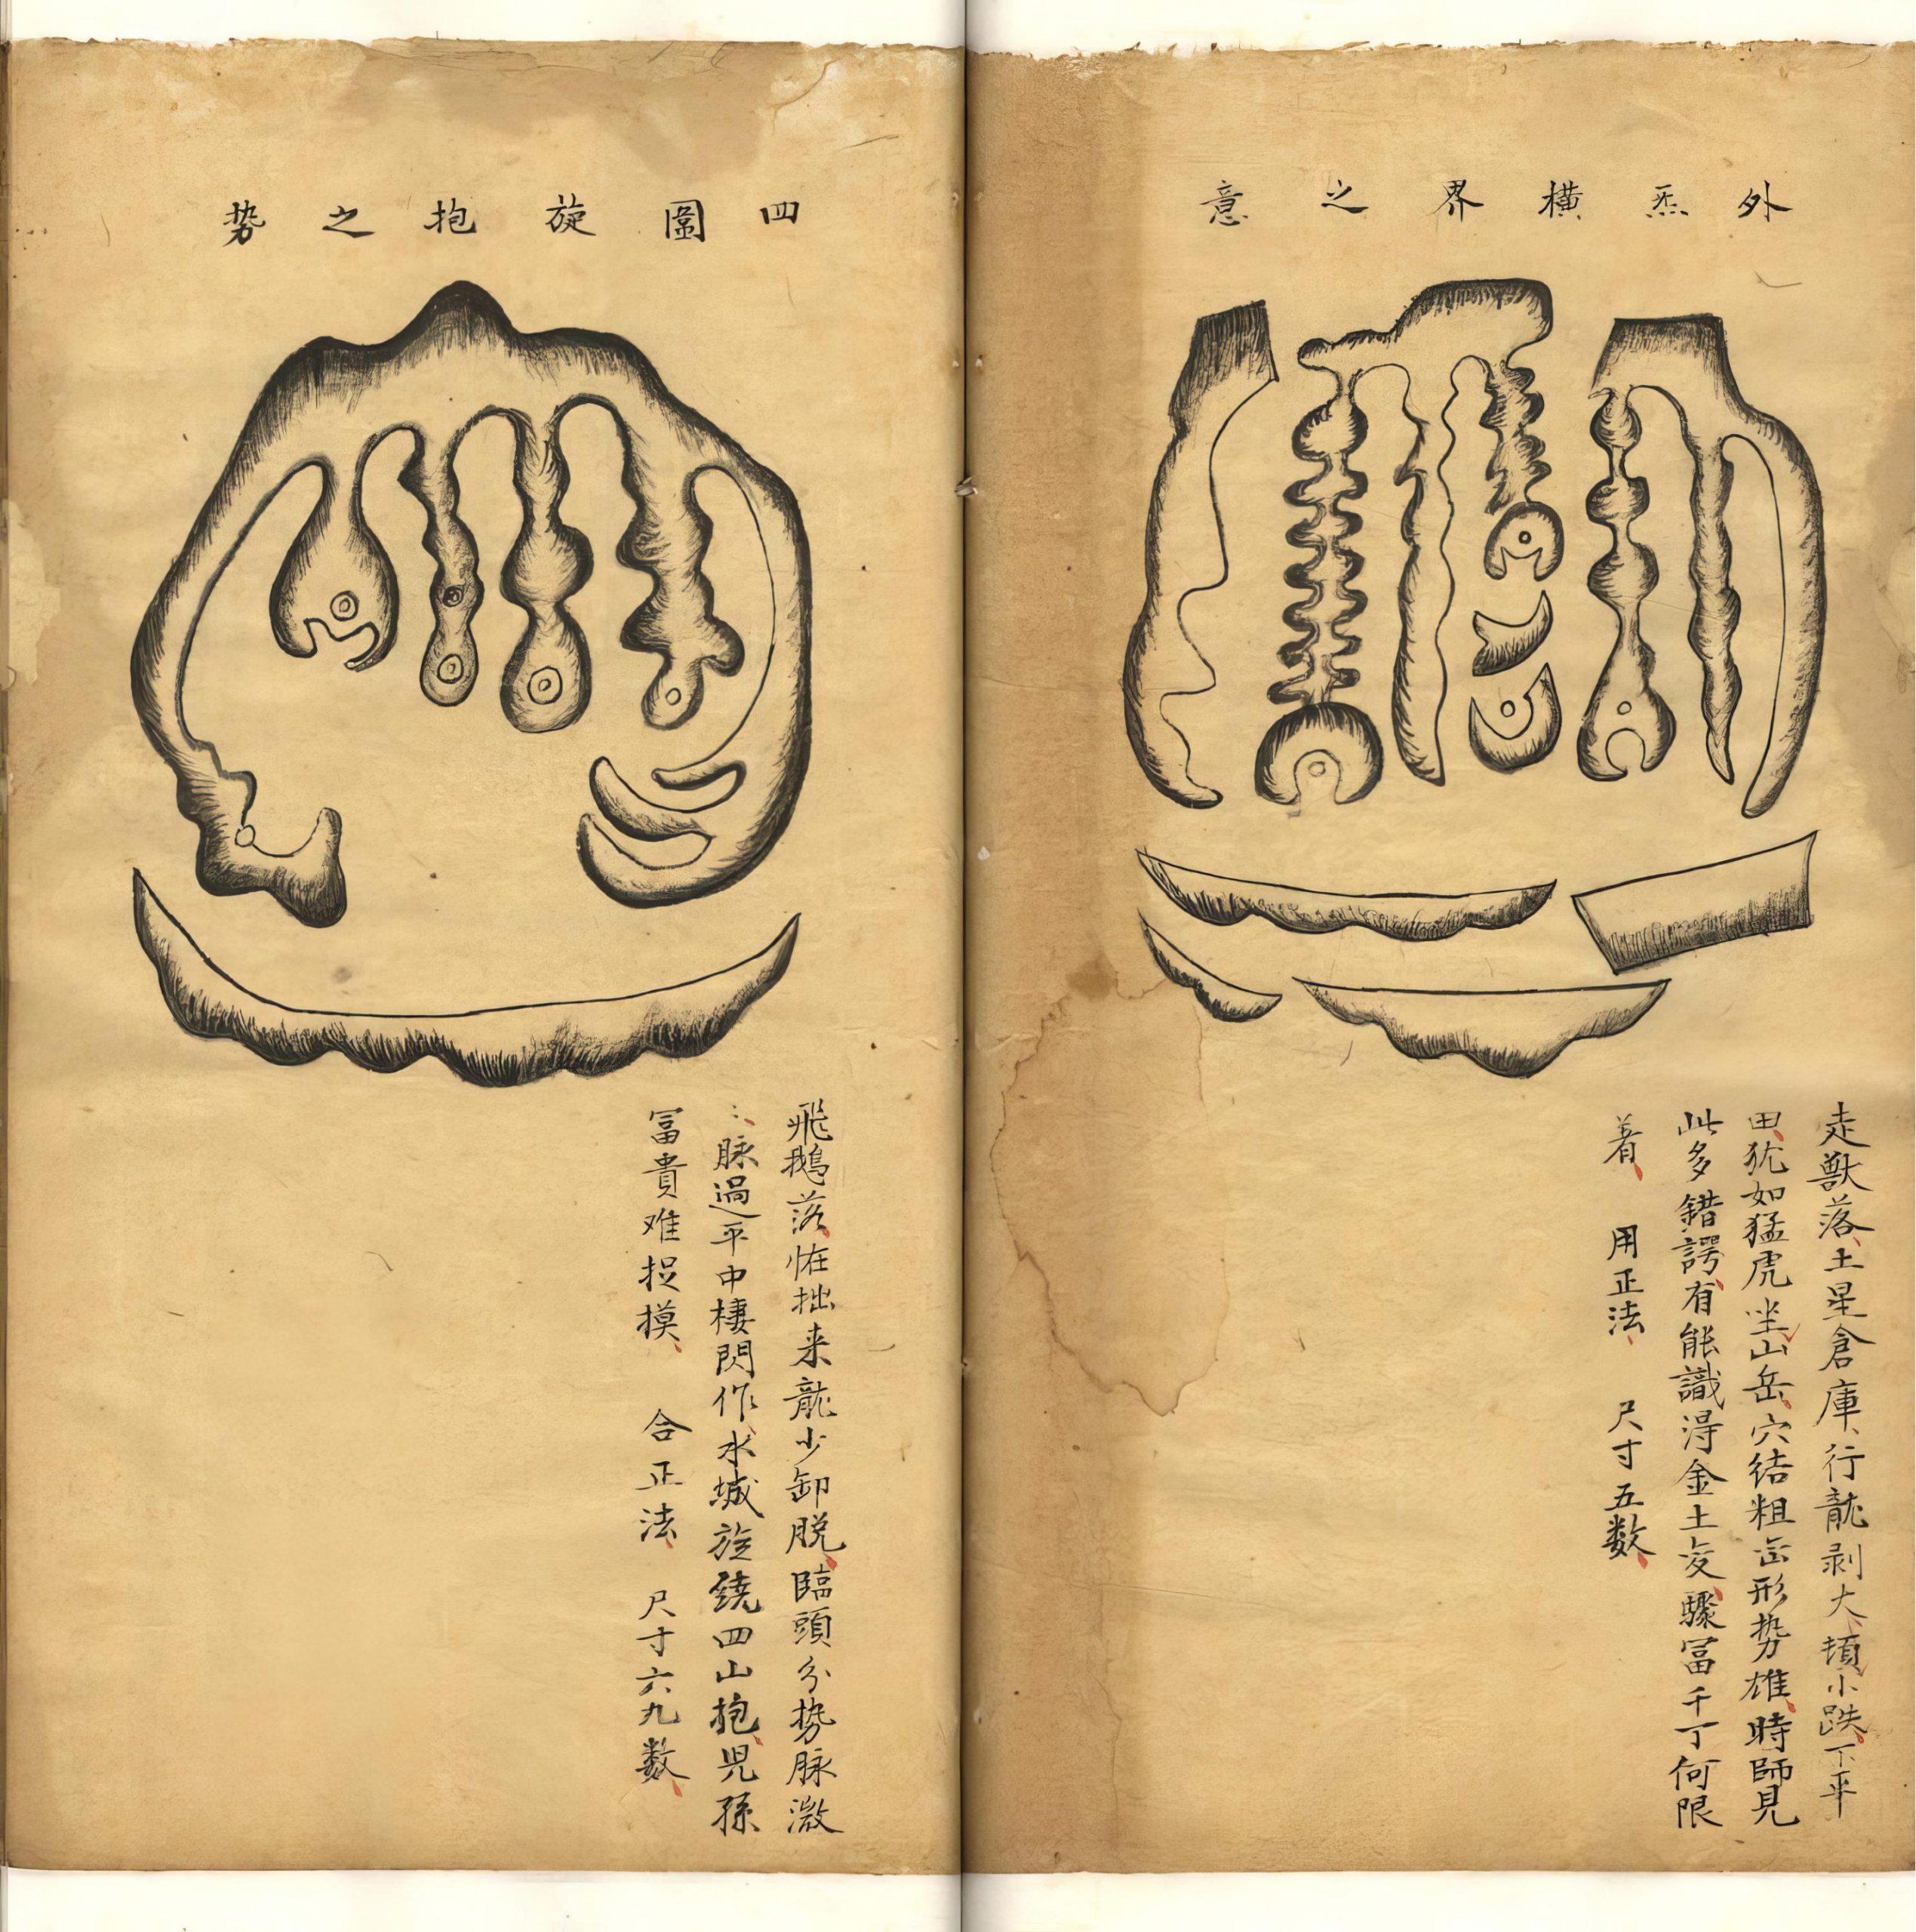 外炁橫界之意
走獸落土星倉庫行龍剥大頓小跌下平
田犹如猛虎坐山岳穴结粗岳形势雄時師見
此多錯諤有能識淂金土交驟冨千丁何限
着 用正法 尺寸五数
四圍旋抱之势
飛鵝落恠拙来龍少卸脱臨頭分势脉激
脉過平中棲閃作水城旋繞四山抱児孫
冨貴难捉摸 合正法 尺寸六九数